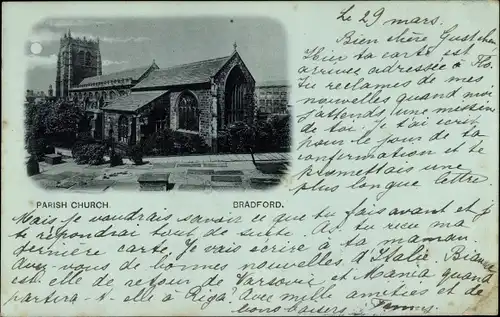 Le 29 mars.
Bien chère Gustchen
Hier ta carte est
arrivée adressée à
tu reclames de mes
nouvelles quand moi
j'attends, une missive
de toi. Je t'ai écrit
pour le jour de ta
confirmation et te
promettais une
plus longue lettre.
PARISH CHURCH. BRADFORD.
Mais je voudrais savoir ce que tu fais avant et j
te répondrai tout de suite. As tu reçu ma
dernière carte. Je vais écrire à ta maman.
Avez-vous de bonnes nouvelles d'Italie.
est-elle de retour de Varsovie et Mania quand
partira-t-elle à Riga? Avec mille amitiés et de
bons baisers Fanny.